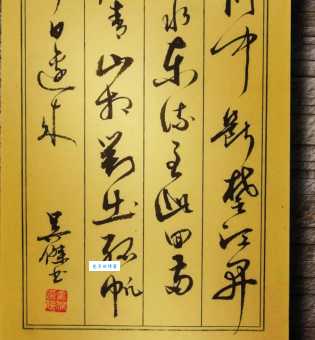 门中断楚江开
水东流至此回两
青山相對出孤帆
日边来
吴傑书